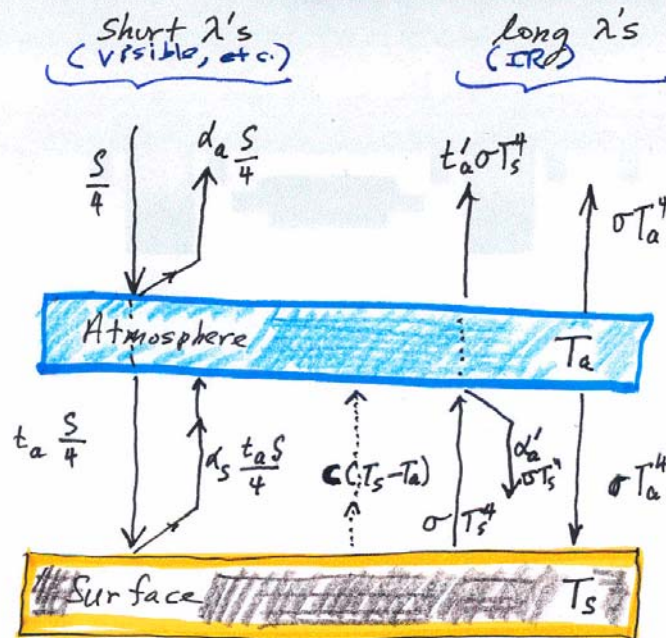 short λ's
(visible, etc.)
long λ's
(IR)
S/4
α_a S/4
t'_a σT_s^4
σT_a^4
Atmosphere
T_a
t_a S/4
α_s t_a S/4
c(T_s-T_a)
σT_s^4
α'_a
σT_s^4
σT_a^4
Surface
T_s